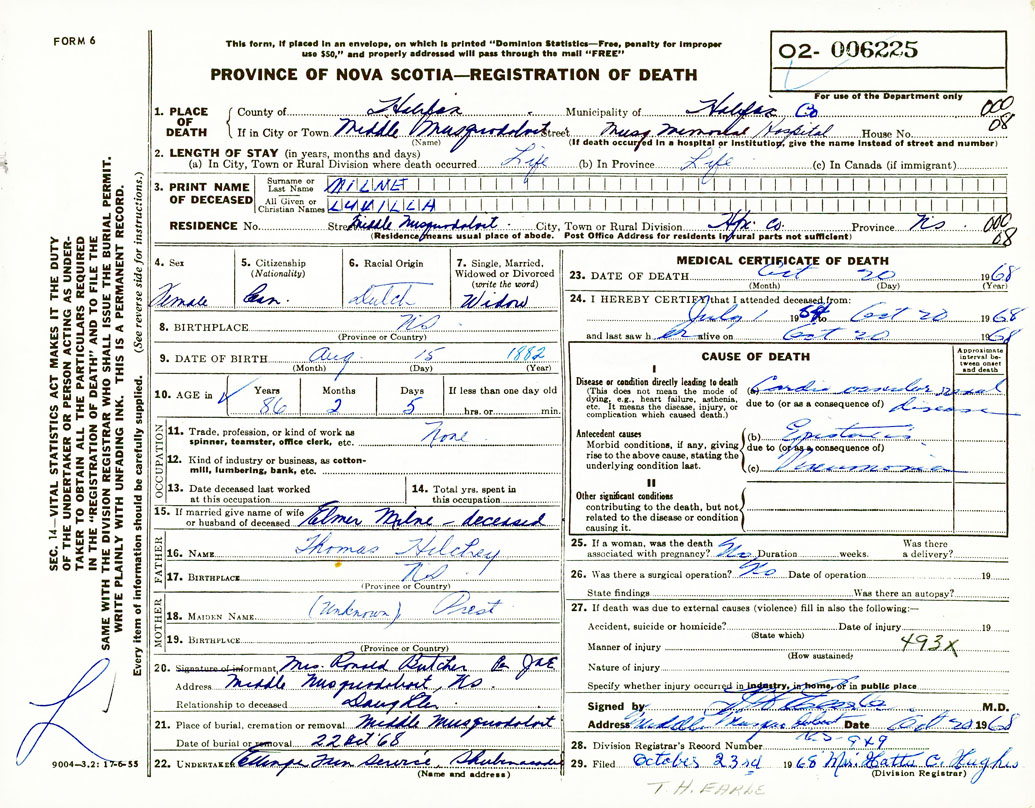 FORM 6
This form, if placed in an envelope, on which is printed "Dominion Statistics—Free, penalty for improper
use $50," and properly addressed will pass through the mail "FREE"
O2- 006225
PROVINCE OF NOVA SCOTIA—REGISTRATION OF DEATH
For use of the Department only
1. PLACE OF DEATH County of Halifax Municipality of Halifax Co 000
If in City or Town Middle Musquodoboit Street Musq Memorial Hospital House No. 08
(Name) (If death occurred in a hospital or institution, give the name instead of street and number)
2. LENGTH OF STAY (in years, months and days)
(a) In City, Town or Rural Division where death occurred Life (b) In Province Life (c) In Canada (if immigrant)
3. PRINT NAME OF DECEASED Surname or Last Name MILNE
All Given or Christian Names LUVILLA
RESIDENCE No. Street Middle Musquodoboit. City, Town or Rural Division Hfx. Co. Province NS 000
(Residence means usual place of abode. Post Office Address for residents in rural parts not sufficient) 08
4. Sex Female
5. Citizenship (Nationality) Can.
6. Racial Origin Dutch
7. Single, Married, Widowed or Divorced (write the word) Widow
8. BIRTHPLACE NS
(Province or Country)
9. DATE OF BIRTH Aug. 15 1882
(Month) (Day) (Year)
10. AGE in Years 86 Months 2 Days 5 If less than one day old
hrs. or min.
OCCUPATION
11. Trade, profession, or kind of work as
spinner, teamster, office clerk, etc. None
12. Kind of industry or business, as cotton-
mill, lumbering, bank, etc.
13. Date deceased last worked
at this occupation
14. Total yrs. spent in
this occupation
15. If married give name of wife
or husband of deceased Elmer Milne - deceased
FATHER
16. NAME Thomas Hilchey
17. BIRTHPLACE NS
(Province or Country)
MOTHER
18. MAIDEN NAME (Unknown) Prest
19. BIRTHPLACE
(Province or Country)
20. Signature of informant Mrs. Ronald Butcher Per
Address Middle Musquodoboit, NS.
Relationship to deceased Daughter
21. Place of burial, cremation or removal Middle Musquodoboit
Date of burial or removal 22 Oct '68
22. UNDERTAKER Ettinger Fun Service, Shubenacadie
(Name and address)
MEDICAL CERTIFICATE OF DEATH
23. DATE OF DEATH Oct 20 1968
(Month) (Day) (Year)
24. I HEREBY CERTIFY that I attended deceased from:
July 1 19 to Oct 20 1968
and last saw her alive on Oct 20 1968
CAUSE OF DEATH
Approximate
interval be-
tween onset
and death
I
Disease or condition directly leading to death
(This does not mean the mode of
dying, e.g., heart failure, asthenia,
etc. It means the disease, injury, or
complication which caused death.)
(a) Cardio vascular renal
due to (or as a consequence of) disease
Antecedent causes
Morbid conditions, if any, giving
rise to the above cause, stating the
underlying condition last.
(b) Epistaxis
due to (or as a consequence of)
(c) Pneumonia
II
Other significant conditions
contributing to the death, but not
related to the disease or condition
causing it.
25. If a woman, was the death Was there
associated with pregnancy? No Duration weeks. a delivery?
26. Was there a surgical operation? No Date of operation 19
State findings Was there an autopsy?
27. If death was due to external causes (violence) fill in also the following:—
Accident, suicide or homicide? Date of injury 19
(State which)
Manner of injury 493X
(How sustained)
Nature of injury
Specify whether injury occurred in industry, in home, or in public place
Signed by M.D.
Address Middle Musquodoboit Date Oct 20 1968
28. Division Registrar's Record Number 949
29. Filed October 23rd 1968 Mrs. Hattie C. Hughes
(Division Registrar)
T. H. EARLE
SEC. 14—VITAL STATISTICS ACT MAKES IT THE DUTY
OF THE UNDERTAKER OR PERSON ACTING AS UNDER-
TAKER TO OBTAIN ALL THE PARTICULARS REQUIRED
IN THE "REGISTRATION OF DEATH" AND TO FILE THE
SAME WITH THE DIVISION REGISTRAR WHO SHALL ISSUE THE BURIAL PERMIT.
WRITE PLAINLY WITH UNFADING INK. THIS IS A PERMANENT RECORD.
Every item of information should be carefully supplied. (See reverse side for instructions.)
9004-3.2: 17-6-55